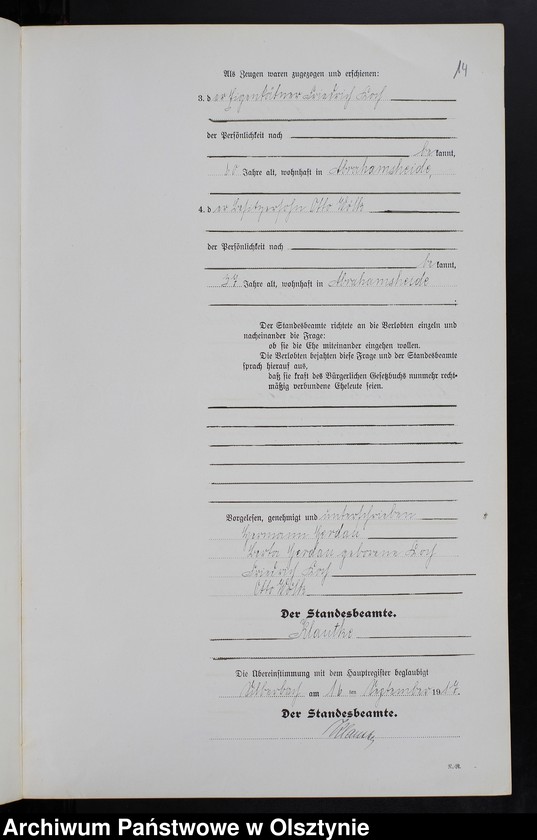 14
Als Zeugen waren zugezogen und erschienen:
3. der Eigenkätner Friedrich Koch
der Persönlichkeit nach
bekannt,
60 Jahre alt, wohnhaft in Abrahamsheide,
4. der Besitzersohn Otto Wölk
der Persönlichkeit nach
bekannt,
37 Jahre alt, wohnhaft in Abrahamsheide
Der Standesbeamte richtete an die Verlobten einzeln und
nacheinander die Frage:
ob sie die Ehe miteinander eingehen wollen.
Die Verlobten bejahten diese Frage und der Standesbeamte
sprach hierauf aus,
daß sie kraft des Bürgerlichen Gesetzbuchs nunmehr recht-
mäßig verbundene Eheleute seien.
Vorgelesen, genehmigt und unterschrieben
Hermann Gerdau
Berta Gerdau geborene Koch
Friedrich Koch
Otto Wölk
Der Standesbeamte.
Klautke
Die Übereinstimmung mit dem Hauptregister beglaubigt
am 16 ten September 1917.
Der Standesbeamte.
Archiwum Państwowe w Olsztynie